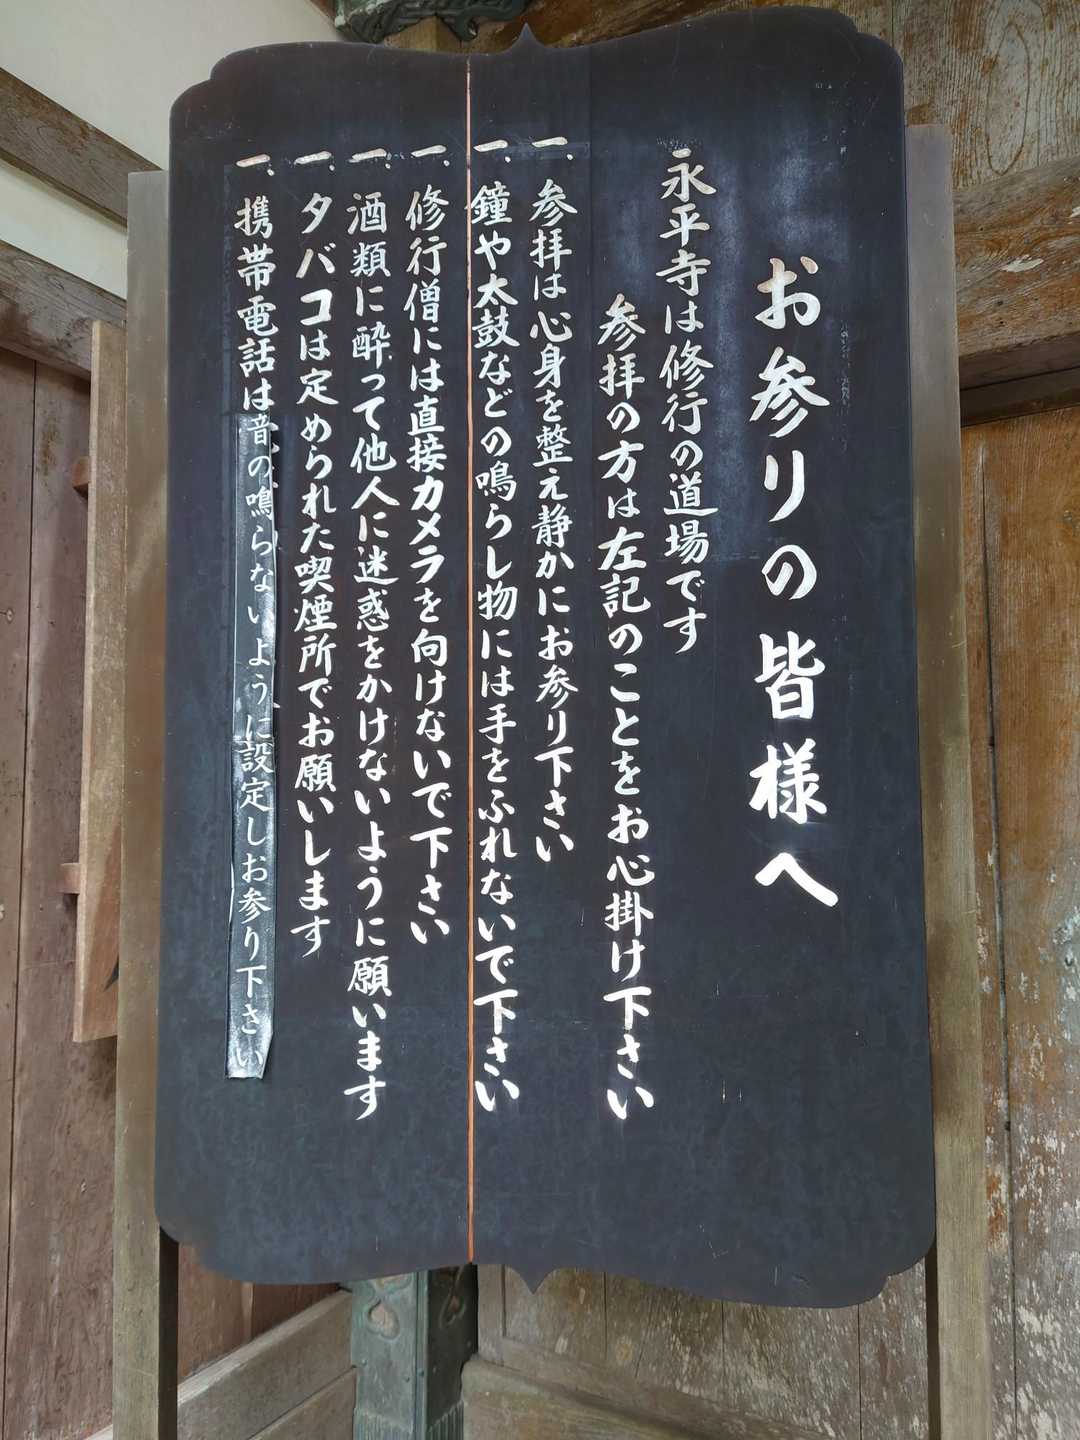 お参りの皆様へ
永平寺は修行の道場です
参拝の方は左記のことをお心掛け下さい
一、参拝は心身を整え静かにお参り下さい
一、鐘や太鼓などの鳴らし物には手をふれないで下さい
一、修行僧には直接カメラを向けないで下さい
一、酒類に酔って他人に迷惑をかけないように願います
一、タバコは定められた喫煙所でお願いします
一、携帯電話は音の鳴らないように設定しお参り下さい